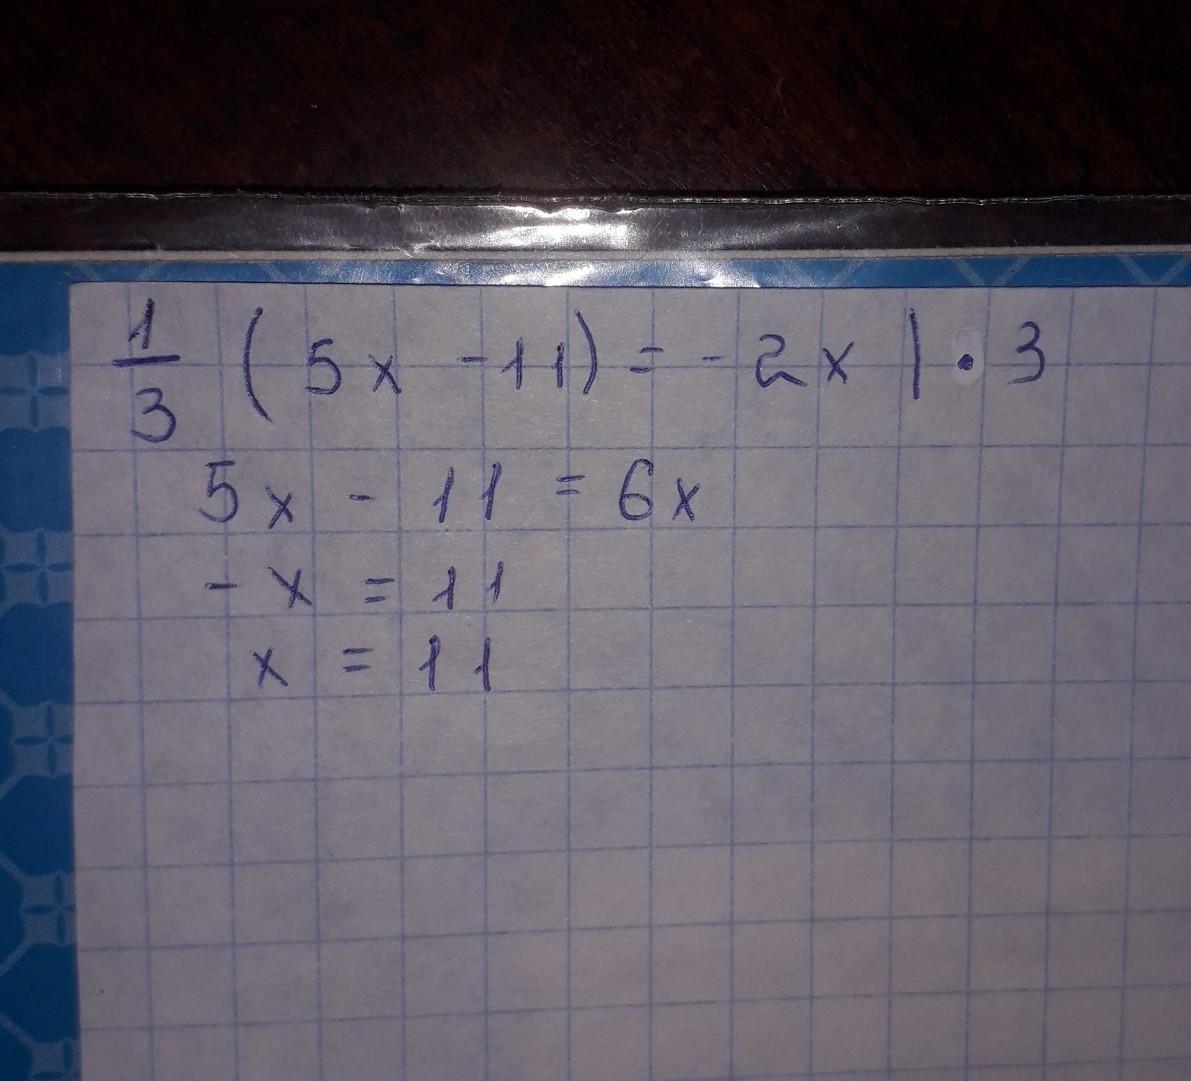 1/3 ( 5x - 11) = - 2x | · 3
5x - 11 = 6x
- x = 11
x = 11